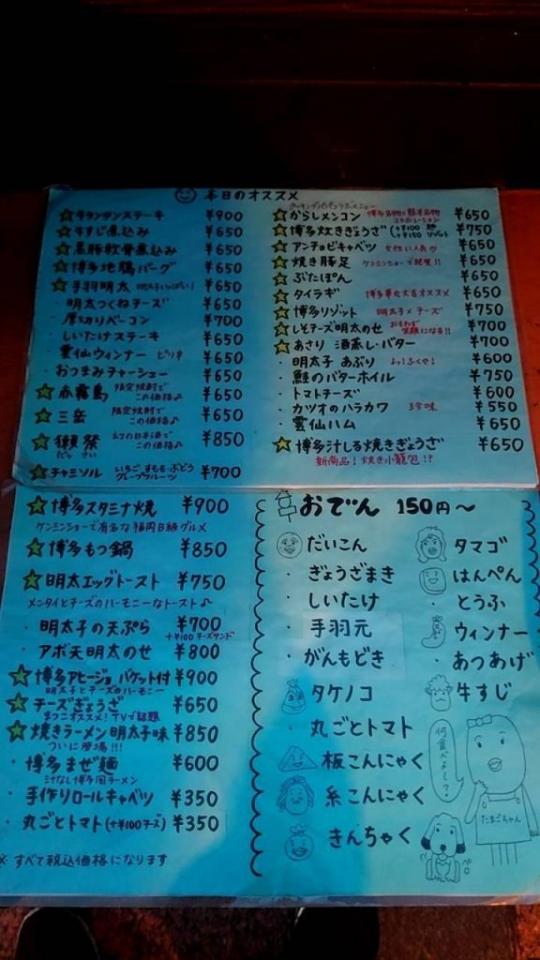 本日のオススメ
牛タンタンステーキ ¥900
牛すじ煮込み ¥650
黒豚軟骨煮込み ¥650
博多地鶏バーグ ¥650
手羽明太 ¥650
明太つくねチーズ ¥650
厚切りベーコン ¥700
しいたけステーキ ¥650
雲仙ウィンナー ピリ辛 ¥650
おつまみチャーシュー ¥650
赤霧島 限定焼酎で この価格♪ ¥650
三岳 限定焼酎で この価格♪ ¥650
獺祭 だっさい 幻の日本酒で この価格♪ ¥850
チャミソル いちご、すもも、ぶどう グレープフルーツ ¥700
からしメンコン 博多名物と熊本名物 コラボレーション ¥650
博多炊きぎょうざ ¥750
アンチョビキャベツ 女性に人気♡ ¥650
焼き豚足 ケンミンショーで絶賛!! ¥650
ぶたぽん ¥650
タイラギ ¥650
博多リゾット 明太子×チーズ ¥750
しそチーズ明太のせ おもわず 笑顔になる!! ¥700
あさり 酒蒸し・バター ¥700
明太子 あぶり ¥600
鮭のバターホイル ¥750
トマトチーズ ¥600
カツオのハラカワ 珍味 ¥550
雲仙ハム ¥650
博多汁しる焼きぎょうざ ¥650
新商品!焼き小籠包!?
博多スタミナ焼 ¥900
ケンミンショーで有名な福岡B級グルメ
博多もつ鍋 ¥850
明太エッグトースト ¥750
メンタイとチーズのハーモニーなトースト♪
明太子の天ぷら ¥700
+¥100チーズサンド
アボ天明太のせ ¥800
博多アヒージョ バケット付 ¥900
明太子とチーズのハーモニー
チーズぎょうざ ¥650
まつこオススメ!TVで話題
焼きラーメン明太子味 ¥850
ついに登場!!!
博多まぜ麺 ¥600
汁なし博多風ラーメン
手作りロールキャベツ ¥350
丸ごとトマト(+¥100チーズ) ¥350
※ すべて税込価格になります
おでん 150円〜
だいこん
ぎょうざまき
しいたけ
手羽元
がんもどき
タケノコ
丸ごとトマト
板こんにゃく
糸こんにゃく
きんちゃく
タマゴ
はんぺん
とうふ
ウィンナー
あつあげ
牛すじ
何食べよ〜?
たまごちゃん